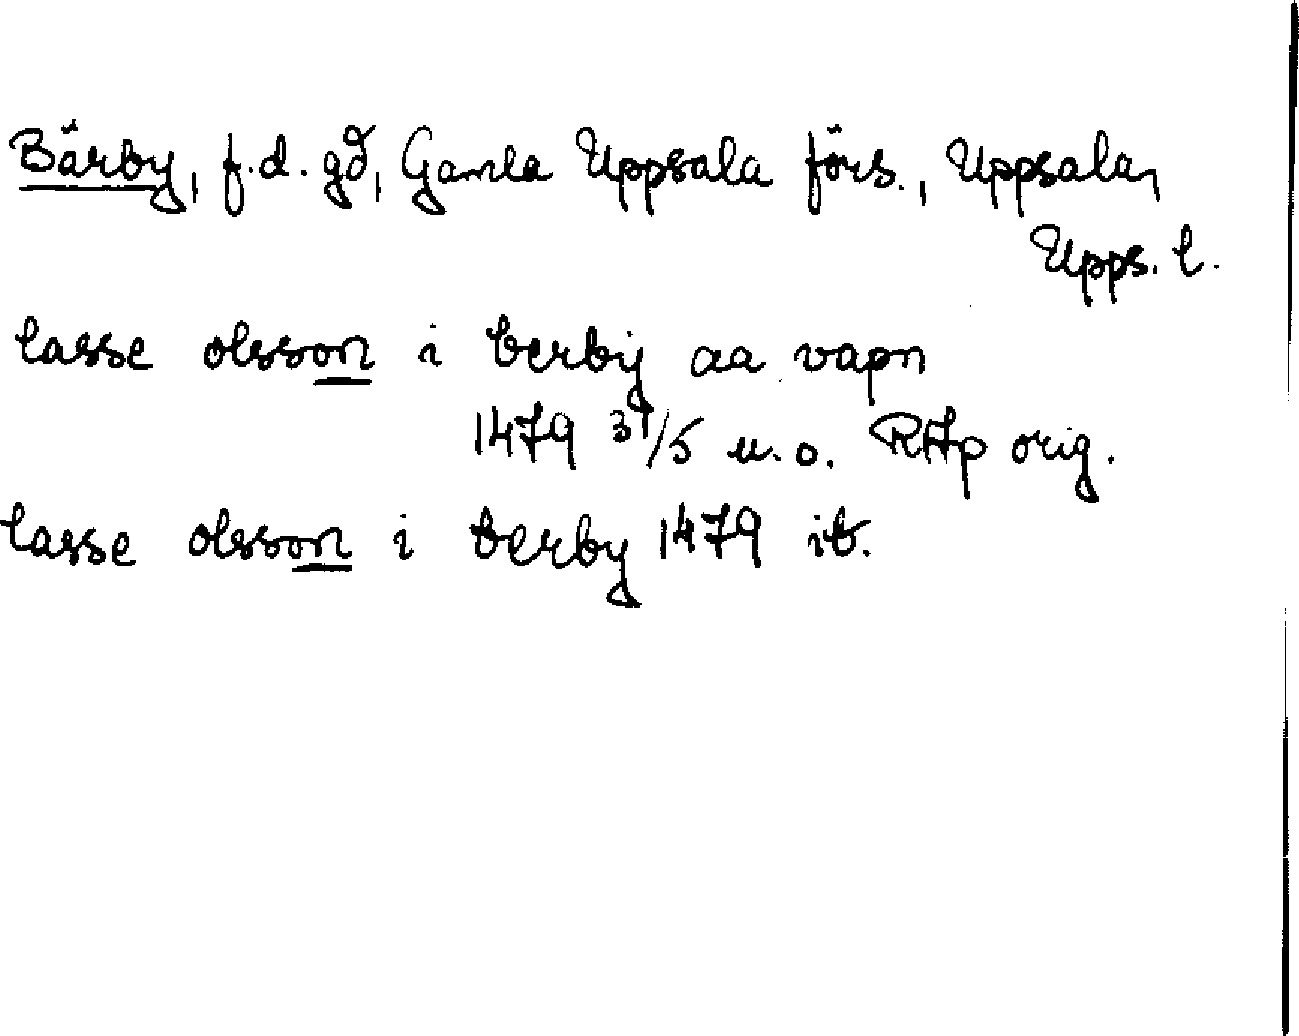 Bärby, f.d. gd, Gamla Uppsala förs., Uppsala,
Upps. l.
lasse olsson i berbij aa vapn
1479 31/5 u.o. RAp orig.
lasse olsson i berby 1479 ib.